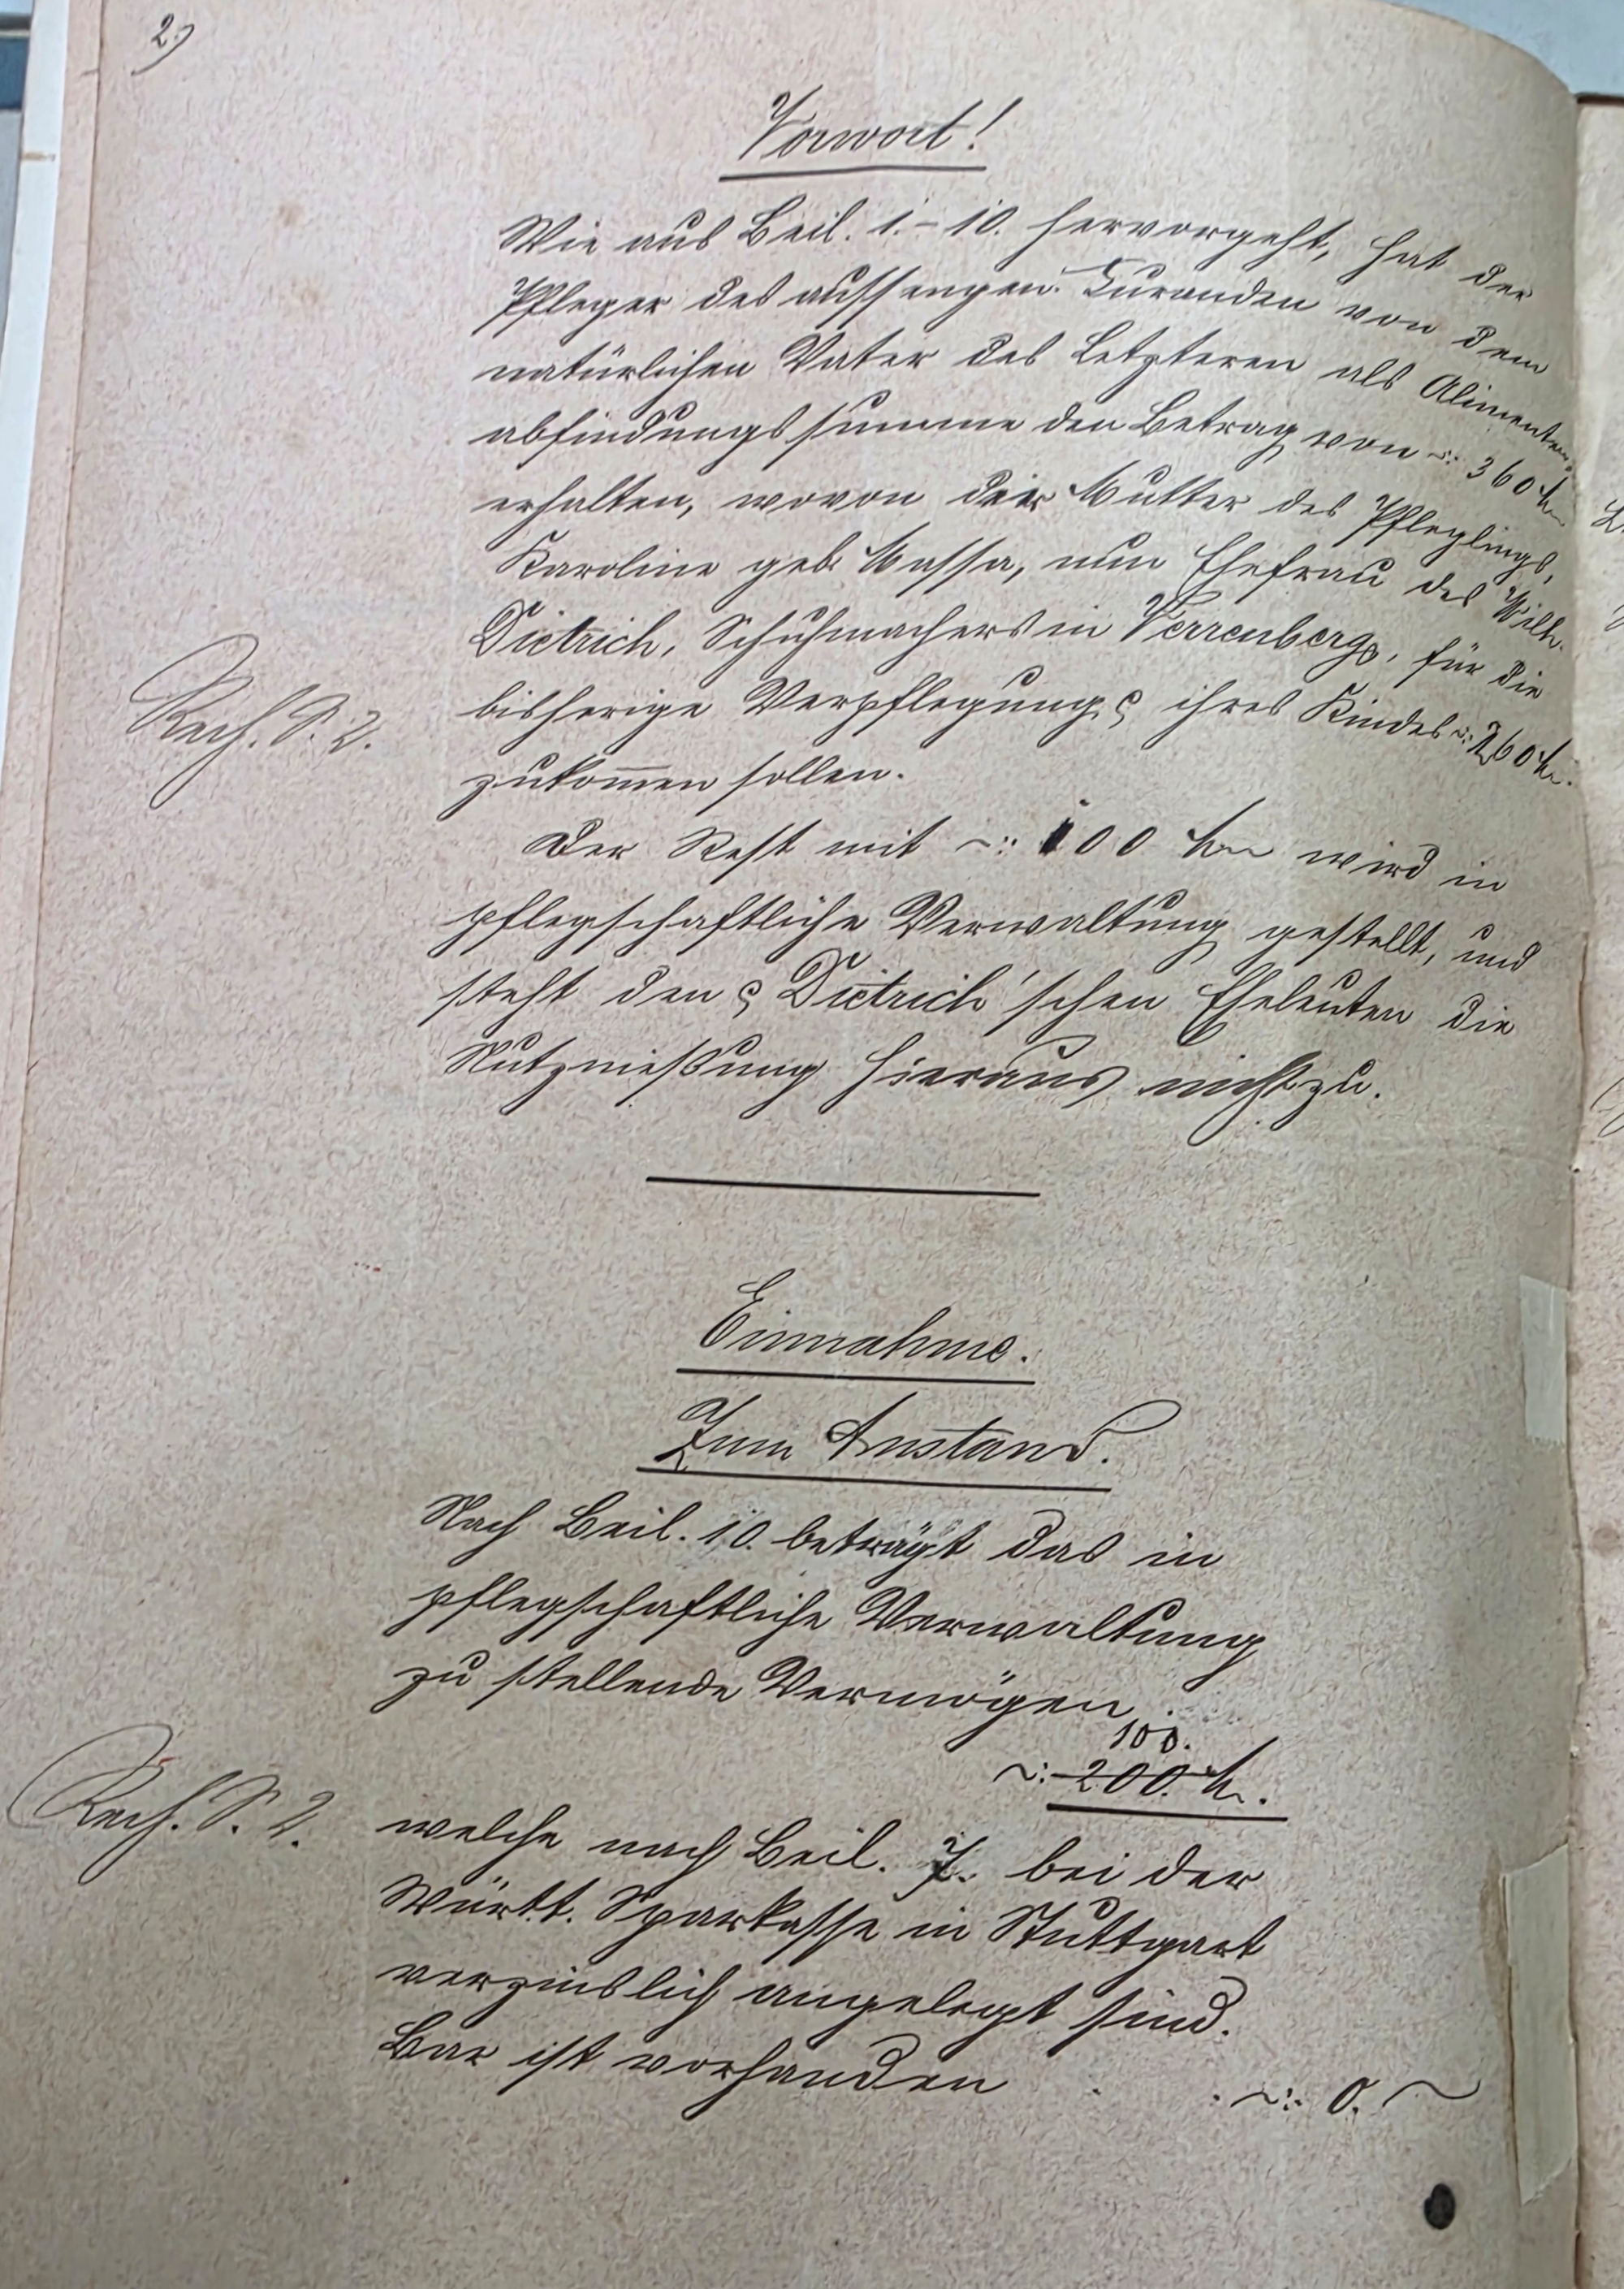 2.)
Vorwort!
Wie aus Beil. 1.-10. hervorgeht, hat der
Pfleger des Curanden von dem
natürlichen Vater des Letzteren als Alimenten-
abfindungssumme den Betrag von ~: 360 M
erhalten, wovon der Mutter des Pfleglings,
Karoline geb. Massa, nun Ehefrau des Wilh.
Dietrich, Schuhmachers in Verrenberg, für die
bisherige Verpflegung ihres Kindes ~: 260 M.
zukommen sollen.
Rech. S. 2.
Der Rest mit ~: 100 M wird in
pflegschaftliche Verwaltung gestellt, und
steht den Dietrich'schen Eheleuten die
Nutznießung hieraus nicht zu.
Einnahme.
Zum Anstand.
Nach Beil. 10. beträgt das in
pflegschaftliche Verwaltung
zu stellende Vermögen
100.
~: 200. M.
Rech. S. 2.
welche nach Beil. 7. bei der
Württ. Sparkasse in Stuttgart
verzinslich angelegt sind.
Bar ist vorhanden . . ~: 0. ~